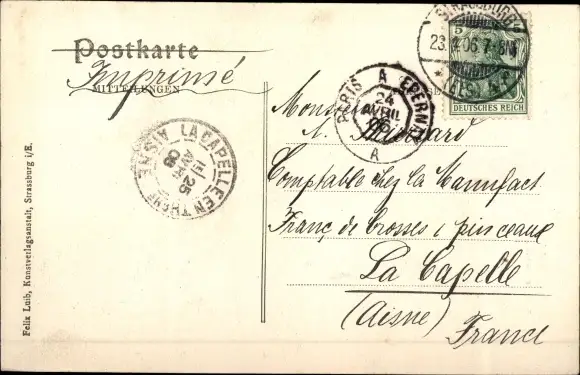 Postkarte
Imprimé
MITTEILUNGEN
STRASSBURG
23.4.06.7-8N
(ELS)
5
DEUTSCHES REICH
PARIS A EPERNAY
24
AVRIL
06
A
LA CAPELLE EN THIERACHE
AISNE
25
AVRIL
06
Monsieur
A.
Comptable chez la Manufact
Franç de brosses & pinceaux
La Capelle
(Aisne)
France
Felix Luib, Kunstverlagsanstalt, Strassburg i/E.